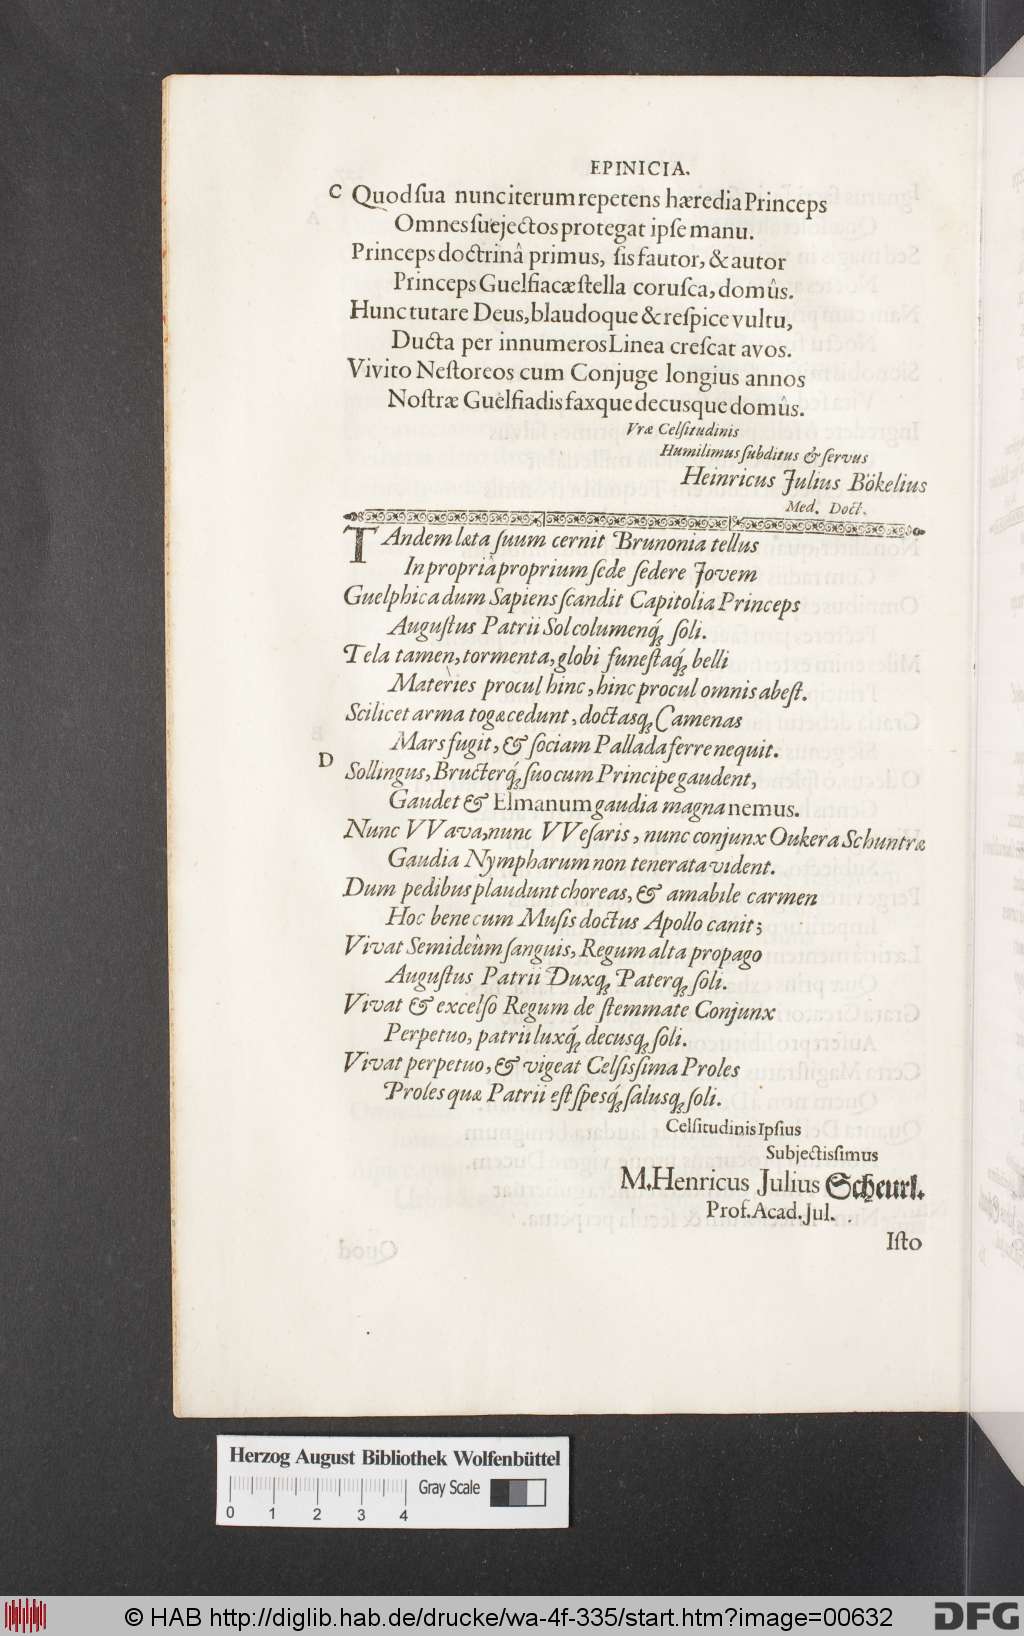 EPINICIA.
C Quod ſua nunc iterum repetens hæredia Princeps
Omnes ſuejectos protegat ipſe manu.
Princeps doctrinâ primus, ſis fautor, & autor
Princeps Guelfiacæ ſtella coruſca, domûs.
Hunc tutare Deus, blaudoque & reſpice vultu,
Ducta per innumeros Linea creſcat avos.
Vivito Neſtoreos cum Conjuge longius annos
Noſtræ Guelfiadis faxque decusque domûs.
Vræ Celſitudinis
Humilimus ſubditus & ſervus
Heinricus Julius Bökelius
Med. Doct.
TAndem læta ſuum cernit Brunonia tellus
In propriâ proprium ſede ſedere Jovem
Guelphica dum Sapiens ſcandit Capitolia Princeps
Auguſtus Patrii Sol columenq́; ſoli.
Tela tamen, tormenta, globi funeſtaq́; belli
Materies procul hinc, hinc procul omnis abeſt.
Scilicet arma togæ cedunt, doctasq; Camenas
Mars fugit, & ſociam Pallada ferre nequit.
D Sollingus, Bructerq́; ſuo cum Principe gaudent,
Gaudet & Elmanum gaudia magna nemus.
Nunc VVava, nunc VVeſaris, nunc conjunx Oukera Schuntræ
Gaudia Nympharum non tenerata vident.
Dum pedibus plaudunt choreas, & amabile carmen
Hoc bene cum Muſis doctus Apollo canit;
Vivat Semideûm ſanguis, Regum alta propago
Auguſtus Patrii Duxq; Paterq; ſoli.
Vivat & excelſo Regum de ſtemmate Conjunx
Perpetuo, patrii luxq́; decusq; ſoli.
Vivat perpetuo, & vigeat Celſisſima Proles
Proles quæ Patrii eſt ſpesq́; ſalusq; ſoli.
Celſitudinis Ipſius
Subjectisſimus
M. Henricus Julius Scheurl.
Prof. Acad. Jul.
Iſto
Herzog August Bibliothek Wolfenbüttel
Gray Scale
0 1 2 3 4
© HAB http://diglib.hab.de/drucke/wa-4f-335/start.htm?image=00632
DFG